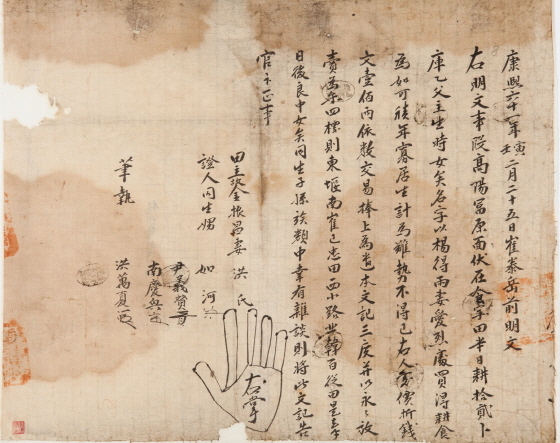 康熙六十一年壬寅二月二十五日崔泰岳前明文
右明文事段高陽冨原面伏在字田半日耕拾貳卜
庫乙父主生時女矣名字以楊得雨妻愛烈處買得耕食
為如可積年寡居生計為難勢不得已右人前價折錢
文壹佰內依數交易捧上為遣本文記三度并以永永放
賣為乎四標則東堰南崔己忠田西小路北韓百從田是
日後良中女矣同生子孫族類中幸有雜談則將此文記告
官卞正事
田主金振昌妻 洪氏
右掌
證人同生娚 如河
尹義賛
南慶
筆執 洪萬夏